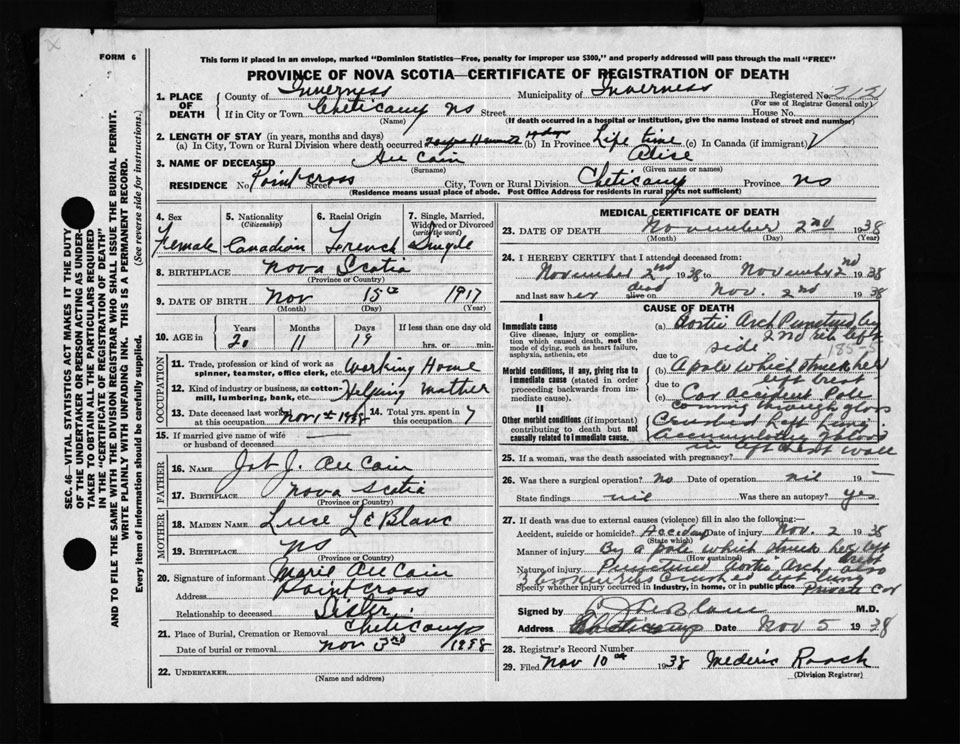 FORM 6
This form if placed in an envelope, marked "Dominion Statistics—Free, penalty for improper use $300," and properly addressed will pass through the mail "FREE"
PROVINCE OF NOVA SCOTIA—CERTIFICATE OF REGISTRATION OF DEATH
1. PLACE OF DEATH
County of Inverness Municipality of Inverness Registered No. 212
(For use of Registrar General only)
If in City or Town Cheticamp NS Street House No.
(Name) (If death occurred in a hospital or institution, give the name instead of street and number)
2. LENGTH OF STAY (in years, months and days)
(a) In City, Town or Rural Division where death occurred (b) In Province Life time (c) In Canada (if immigrant)
3. NAME OF DECEASED Au Cain Alise
(Surname) (Given name or names)
RESIDENCE No. Point cross Street City, Town or Rural Division Cheticamp Province NS
(Residence means usual place of abode. Post Office Address for residents in rural parts not sufficient)
4. Sex 5. Nationality (Citizenship) 6. Racial Origin 7. Single, Married, Widowed or Divorced (write the word)
Female Canadian French Single
8. BIRTHPLACE Nova Scotia
(Province or Country)
9. DATE OF BIRTH Nov 15th 1917
(Month) (Day) (Year)
10. AGE in Years Months Days If less than one day old
20 11 19 hrs. or min.
OCCUPATION
11. Trade, profession or kind of work as spinner, teamster, office clerk, etc. Working Home
12. Kind of industry or business, as cotton-mill, lumbering, bank, etc. Helping mother
13. Date deceased last worked at this occupation Nov 1st 1938 14. Total yrs. spent in this occupation 7
15. If married give name of wife or husband of deceased —
FATHER
16. NAME Jos J. Au Cain
17. BIRTHPLACE Nova Scotia
(Province or Country)
MOTHER
18. MAIDEN NAME Luce LeBlanc
19. BIRTHPLACE NS
(Province or Country)
20. Signature of informant Marie Au Cain
Address Point cross
Relationship to deceased Sister
21. Place of Burial, Cremation or Removal Cheticamp
Date of burial or removal Nov 3rd 1938
22. UNDERTAKER
(Name and address)
MEDICAL CERTIFICATE OF DEATH
23. DATE OF DEATH November 2nd 1938
(Month) (Day) (Year)
24. I HEREBY CERTIFY that I attended deceased from:
November 2nd 1938 to November 2nd 1938
and last saw her dead alive on Nov. 2nd 1938
CAUSE OF DEATH
I
Immediate cause
Give disease, injury or complication which caused death, not the mode of dying, such as heart failure, asphyxia, asthenia, etc
(a) Aortic Arch Punctured by 2nd rib left side
due to
Morbid conditions, if any, giving rise to immediate cause (stated in order proceeding backwards from immediate cause).
(b) A pole which struck her left breast
due to
(c) Car Pole coming through glass
II
Other morbid conditions (if important) contributing to death but not causally related to immediate cause.
Crushed left lung.
left chest wall
25. If a woman, was the death associated with pregnancy?
26. Was there a surgical operation? No Date of operation nil 19 —
State findings nil Was there an autopsy? yes
27. If death was due to external causes (violence) fill in also the following:—
Accident, suicide or homicide? Accident Date of injury Nov. 2 1938
(State which)
Manner of injury By a pole which struck her left breast
(How sustained)
Nature of injury Punctured Aortic Arch also
3 broken ribs crushed left lung
Specify whether injury occurred in industry, in home, or in public place Private Car
Signed by LeBlanc M.D.
Address Cheticamp Date Nov 5 1938
28. Registrar's Record Number
29. Filed Nov 10th 1938 Mederic Roach
(Division Registrar)
SEC. 46—VITAL STATISTICS ACT MAKES IT THE DUTY
OF THE UNDERTAKER OR PERSON ACTING AS UNDER-
TAKER TO OBTAIN ALL THE PARTICULARS REQUIRED
IN THE "CERTIFICATE OF REGISTRATION OF DEATH"
AND TO FILE THE SAME WITH THE DIVISION REGISTRAR WHO SHALL ISSUE THE BURIAL PERMIT.
WRITE PLAINLY WITH UNFADING INK. THIS IS A PERMANENT RECORD.
Every item of information should be carefully supplied. (See reverse side for instructions.)